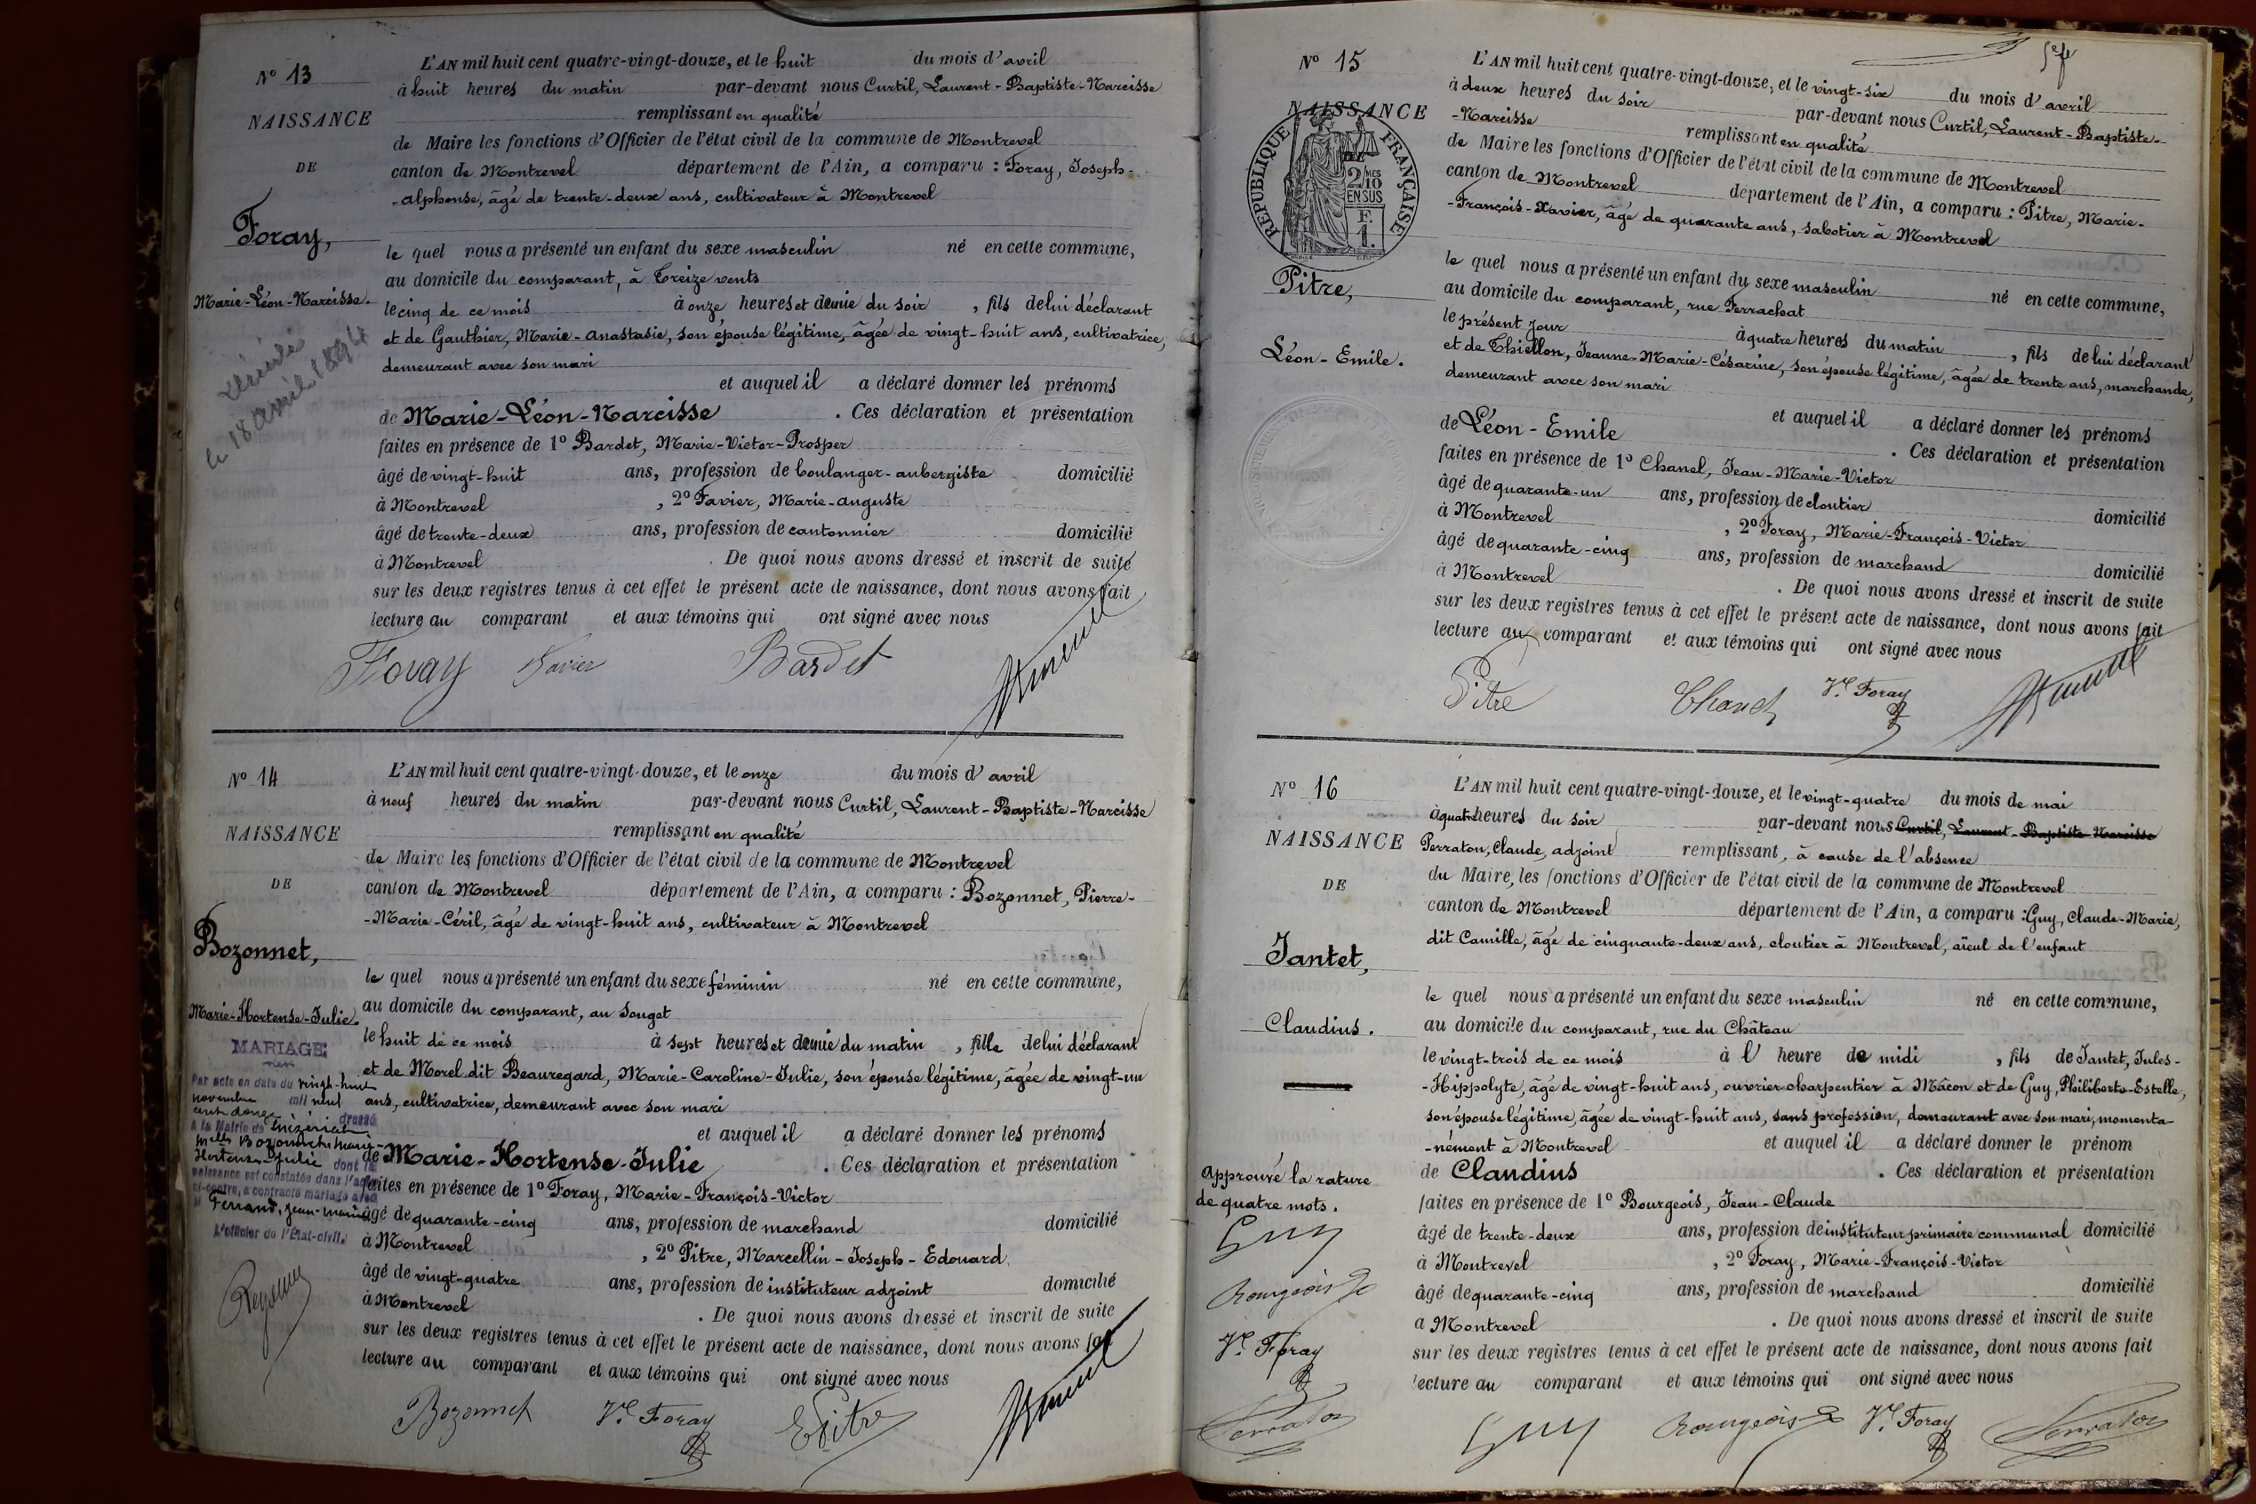 N° 13
NAISSANCE
DE
Foray,
Marie-Léon-Narcisse.
le 18 avril 1894
L'AN mil huit cent quatre-vingt-douze, et le huit du mois d'avril
à huit heures du matin par-devant nous Curtil, Laurent-Baptiste-Narcisse
remplissant en qualité
de Maire les fonctions d'Officier de l'état civil de la commune de Montrevel
canton de Montrevel département de l'Ain, a comparu : Foray, Joseph-
-Alphonse, âgé de trente-deux ans, cultivateur à Montrevel
le quel nous a présenté un enfant du sexe masculin né en cette commune,
au domicile du comparant, à Treize vents
le cinq de ce mois à onze heures et demie du soir , fils de lui déclarant
et de Gauthier, Marie-Anastasie, son épouse légitime, âgée de vingt-huit ans, cultivatrice,
demeurant avec son mari
et auquel il a déclaré donner les prénoms
de Marie-Léon-Narcisse . Ces déclaration et présentation
faites en présence de 1° Bardet, Marie-Victor-Prosper
âgé de vingt-huit ans, profession de boulanger-aubergiste domicilié
à Montrevel , 2° Favier, Marie-Auguste
âgé de trente-deux ans, profession de cantonnier domicilié
à Montrevel . De quoi nous avons dressé et inscrit de suite
sur les deux registres tenus à cet effet le présent acte de naissance, dont nous avons fait
lecture au comparant et aux témoins qui ont signé avec nous
Foray Favier Bardet
N° 14
NAISSANCE
DE
Bozonnet,
Marie-Hortense-Julie.
MARIAGE
Par acte en date du vingt-huit
novembre mil neuf
cent douze dressé
à la Mairie de
Melle Bozonnet Marie-
Hortense-Julie dont la
naissance est constatée dans l'acte
ci-contre, a contracté mariage avec
M Ferrand, Jean-Marie
L'officier de l'État-civil.
L'AN mil huit cent quatre-vingt-douze, et le onze du mois d'avril
à neuf heures du matin par-devant nous Curtil, Laurent-Baptiste-Narcisse
remplissant en qualité
de Maire les fonctions d'Officier de l'état civil de la commune de Montrevel
canton de Montrevel département de l'Ain, a comparu : Bozonnet, Pierre-
-Marie-Céril, âgé de vingt-huit ans, cultivateur à Montrevel
le quel nous a présenté un enfant du sexe féminin né en cette commune,
au domicile du comparant, au Souget
le huit de ce mois à sept heures et demie du matin , fille de lui déclarant
et de Morel dit Beauregard, Marie-Caroline-Julie, son épouse légitime, âgée de vingt-un
ans, cultivatrice, demeurant avec son mari
et auquel il a déclaré donner les prénoms
de Marie-Hortense-Julie . Ces déclaration et présentation
faites en présence de 1° Foray, Marie-François-Victor
âgé de quarante-cinq ans, profession de marchand domicilié
à Montrevel , 2° Pitre, Marcellin-Joseph-Edouard
âgé de vingt-quatre ans, profession de instituteur adjoint domicilié
à Montrevel . De quoi nous avons dressé et inscrit de suite
sur les deux registres tenus à cet effet le présent acte de naissance, dont nous avons fait
lecture au comparant et aux témoins qui ont signé avec nous
Bozonnet Vr Foray EPitre
N° 15
NAISSANCE
RÉPUBLIQUE FRANÇAISE
2/10 MES
EN SUS
F.
1.
Pitre,
Léon-Emile.
L'AN mil huit cent quatre-vingt-douze, et le vingt-six du mois d'avril
à deux heures du soir par-devant nous Curtil, Laurent-Baptiste-
-Narcisse remplissant en qualité
de Maire les fonctions d'Officier de l'état civil de la commune de Montrevel
canton de Montrevel département de l'Ain, a comparu : Pitre, Marie-
-François-Xavier, âgé de quarante ans, sabotier à Montrevel
le quel nous a présenté un enfant du sexe masculin né en cette commune,
au domicile du comparant, rue Ferrachat
le présent jour à quatre heures du matin , fils de lui déclarant
et de Thiellon, Jeanne-Marie-Césarine, son épouse légitime, âgée de trente ans, marchande,
demeurant avec son mari
et auquel il a déclaré donner les prénoms
de Léon-Emile . Ces déclaration et présentation
faites en présence de 1° Chanel, Jean-Marie-Victor
âgé de quarante-un ans, profession de cloutier domicilié
à Montrevel , 2° Foray, Marie-François-Victor
âgé de quarante-cinq ans, profession de marchand domicilié
à Montrevel . De quoi nous avons dressé et inscrit de suite
sur les deux registres tenus à cet effet le présent acte de naissance, dont nous avons fait
lecture au comparant et aux témoins qui ont signé avec nous
Pitre Chanel Vr Foray
N° 16
NAISSANCE
DE
Jantet,
Claudius.
Approuvé la rature
de quatre mots.
Guy
Bourgeois
Vr Foray
Perraton
L'AN mil huit cent quatre-vingt-douze, et le vingt-quatre du mois de mai
à quatre heures du soir par-devant nous Curtil, Laurent-Baptiste Narcisse
Perraton, Claude, adjoint remplissant, à cause de l'absence
du Maire, les fonctions d'Officier de l'état civil de la commune de Montrevel
canton de Montrevel département de l'Ain, a comparu : Guy, Claude-Marie,
dit Camille, âgé de cinquante-deux ans, cloutier à Montrevel, aïeul de l'enfant
le quel nous a présenté un enfant du sexe masculin né en cette commune,
au domicile du comparant, rue du Château
le vingt-trois de ce mois à l' heure de midi , fils de Jantet, Jules-
-Hippolyte, âgé de vingt-huit ans, ouvrier charpentier à Mâcon et de Guy, Philiberte-Estelle,
son épouse légitime, âgée de vingt-huit ans, sans profession, demeurant avec son mari, momenta-
-nément à Montrevel et auquel il a déclaré donner le prénom
de Claudius . Ces déclaration et présentation
faites en présence de 1° Bourgeois, Jean-Claude
âgé de trente-deux ans, profession de instituteur primaire communal domicilié
à Montrevel , 2° Foray, Marie-François-Victor
âgé de quarante-cinq ans, profession de marchand domicilié
à Montrevel . De quoi nous avons dressé et inscrit de suite
sur les deux registres tenus à cet effet le présent acte de naissance, dont nous avons fait
lecture au comparant et aux témoins qui ont signé avec nous
Guy Bourgeois Vr Foray Perraton